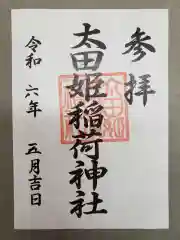 参拝
太田姫稲荷神社
令和六年五月吉日